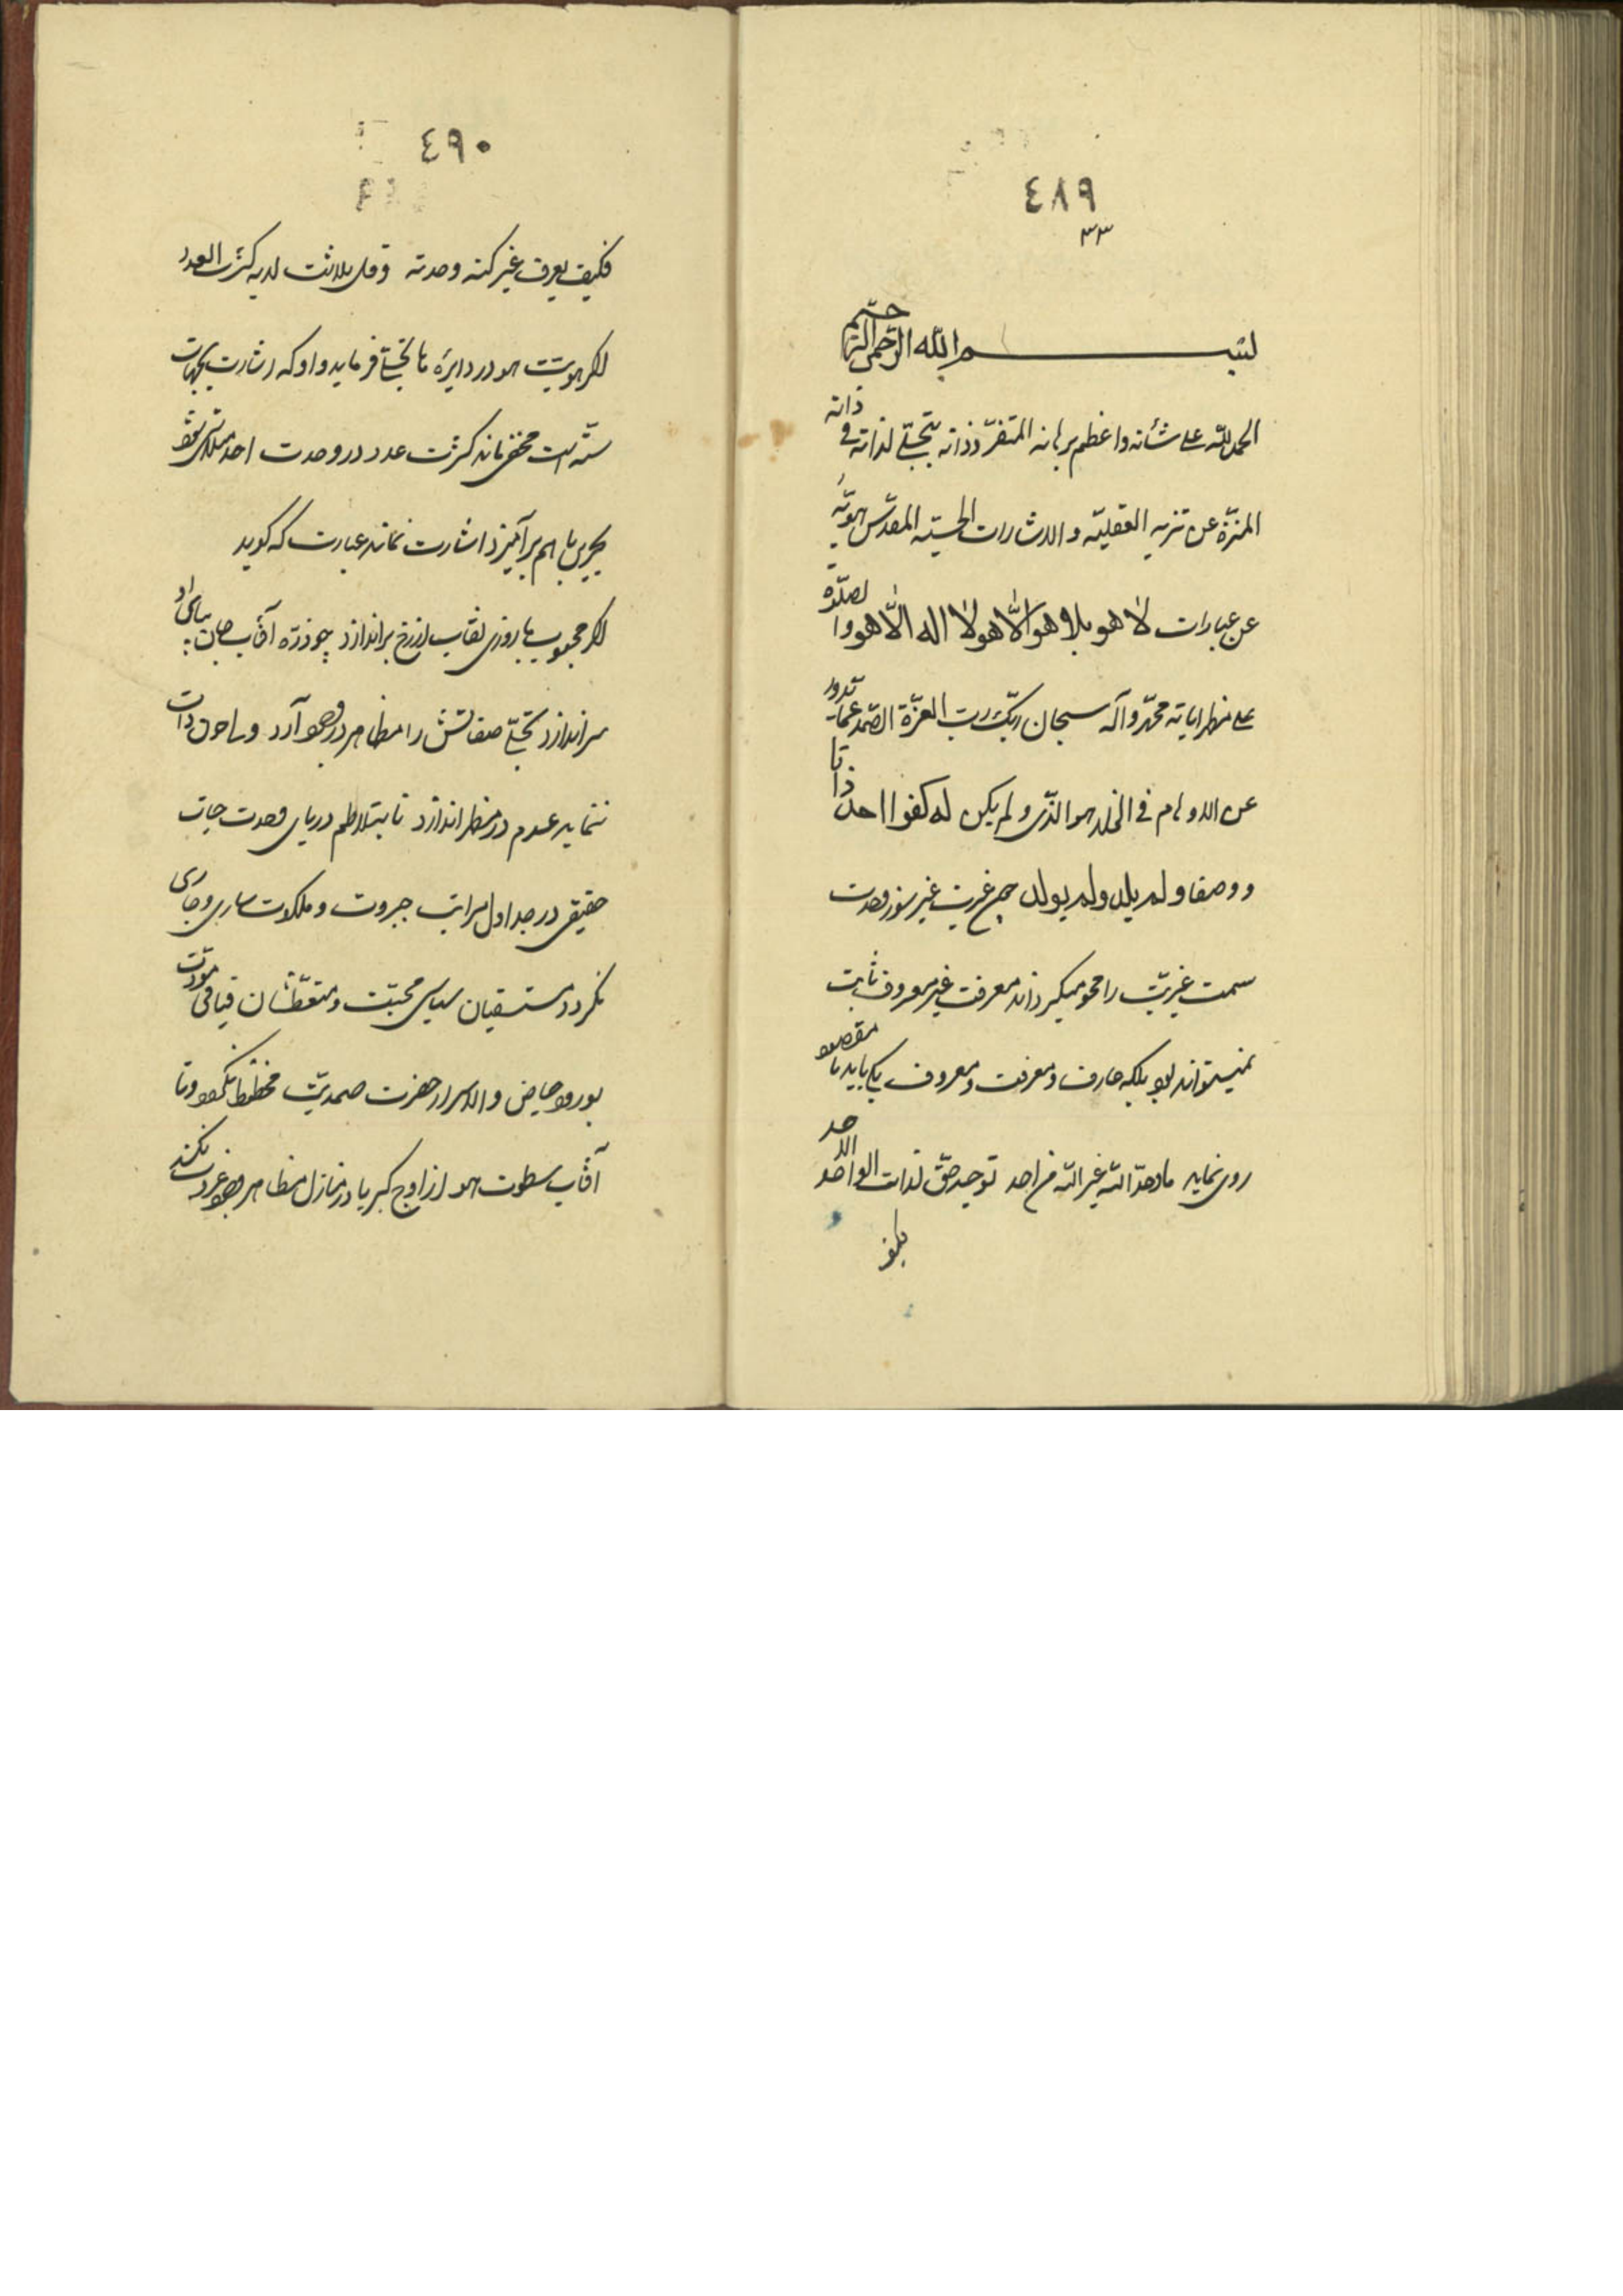 ٤٨٩
٣٣
بسم الله الرحمن الرحیم
الحمد للّه علی شأنه و اعظم برهانه المتفرّد ذاته بتجلّی لذاته فی ذاته
المنزّه عن تنزیه العقلیّه و الاشارات الحسّیه المقدّس هویّته
عن عبارات لا هو بلا هو الّا هو لا اله الّا هو و الصلوة
علی مظهر ایاته محمّد و آله سبحان ربّک ربّ العزّة الصّمد عمّا
عن الاوهام فی الخلد هو الّذی و لم یکن له کفوا احد ذاتا
و وصفا و لم یلد و لم یولد غیریت غیر سوز وحدت
سمت غیریّت را محو میگرداند معرفت غیر معروف ثابت
نمیتواند بود بلکه عارف و معرفت و معروف یکی باید تا مقصود
روی نماید ما وحّد اللّه غیر اللّه من احد توحید حقّ لذات الواحد الاحد
٤٩٠
فکیف یعرف غیر کنه وحدته و قد تلاشت لدیه کثرت العدد
اگر هویّت هو در دایرهٔ ها تجلّی فرماید واو که اشارت بجهات
ستّه است مختفی ماند کثرت عدد در وحدت احد متلاشی شود
بحرین با هم برآمیزد اشارت نماند عبارت که گوید
اگر محبوب ما روزی نقاب از رخ براندازد چو ذرّه آفتاب جان بپای او
سر اندازد تجلّی صفاتش را مظاهر در وجود آرد و ذات
ننماید عدم در مظهر اندازد تا بتلاطم دریای وحدت حیات
حقیقی در جداول مراتب جبروت و ملکوت ساری و جاری
نگردد مستسقیان محبّت و متعطّشان فیافی مودّت
بورود حیاض و الاسرار حضرت صمدیّت محظوظ نگردد و تا
آفتاب سطوت هو از اوج کبریا در منازل مظاهر وجود نکند